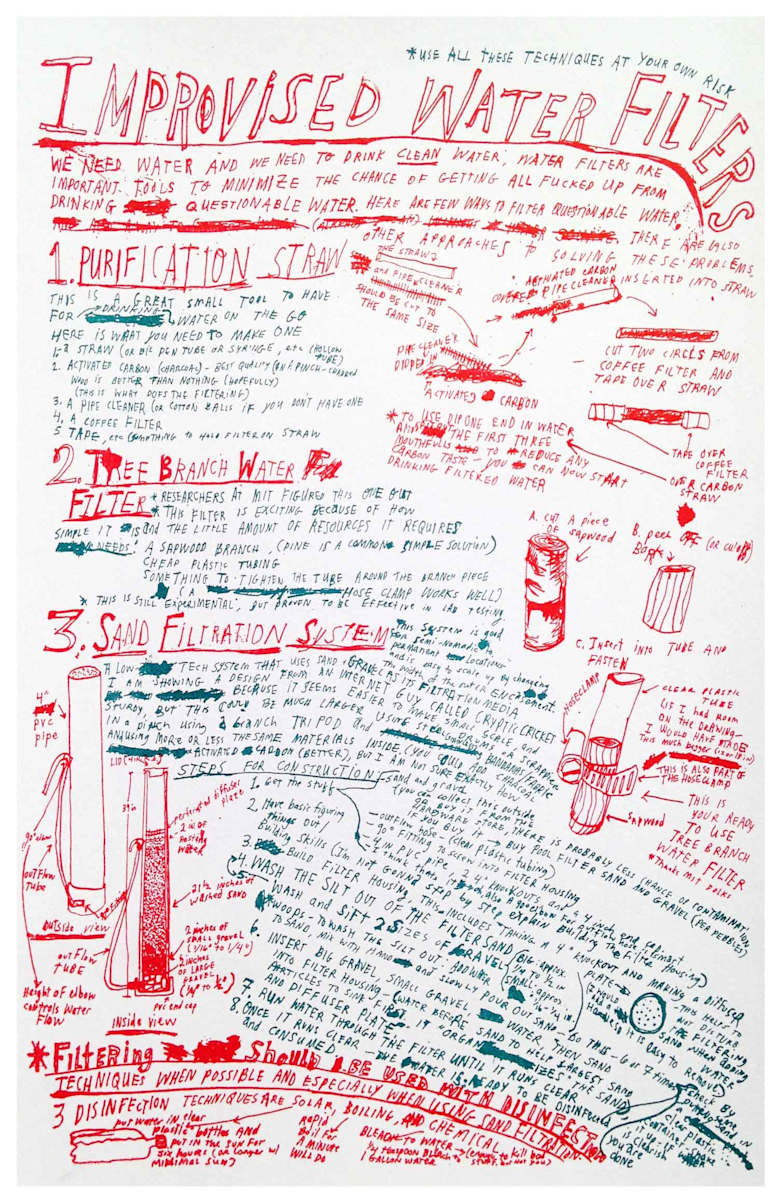 *USE ALL THESE TECHNIQUES AT YOUR OWN RISK
IMPROVISED WATER FILTERS
WE NEED WATER AND WE NEED TO DRINK CLEAN WATER, WATER FILTERS ARE
IMPORTANT TOOLS TO MINIMIZE THE CHANCE OF GETTING ALL FUCKED UP FROM
DRINKING QUESTIONABLE WATER. HERE ARE FEW WAYS TO FILTER QUESTIONABLE WATER.
THERE ARE ALSO
OTHER APPROACHES TO SOLVING THESE PROBLEMS
1. PURIFICATION STRAW
THIS IS A GREAT SMALL TOOL TO HAVE
FOR DRINKING WATER ON THE GO
HERE IS WHAT YOU NEED TO MAKE ONE
1. A STRAW (OR BIC PEN TUBE OR SYRINGE, etc (HOLLOW
TUBE)
2. ACTIVATED CARBON (CHARCOAL) - BEST QUALITY (IN A PINCH - CHARRED
WOOD IS BETTER THAN NOTHING (HOPEFULLY)
(THIS IS WHAT DOES THE FILTERING)
3. A PIPE CLEANER (OR COTTON BALLS IF YOU DON'T HAVE ONE
4. A COFFEE FILTER
5 TAPE, etc (SOMETHING TO HOLD FILTER ON STRAW
THE STRAW
and PIPE CLEANER
SHOULD BE CUT TO
THE SAME SIZE
PIPE CLEANER
DIPPED IN
ACTIVATED CARBON
ACTIVATED CARBON
COVERED PIPE CLEANER INSERTED INTO STRAW
CUT TWO CIRCLES FROM
COFFEE FILTER AND
TAPE OVER STRAW
TAPE OVER
COFFEE
FILTER
OVER CARBON
STRAW
*TO USE DIP ONE END IN WATER
THE FIRST THREE
MOUTHFULLS TO REDUCE ANY
CARBON TASTE - YOU CAN NOW START
DRINKING FILTERED WATER
2. TREE BRANCH WATER
FILTER
* RESEARCHERS AT MIT FIGURED THIS ONE OUT
* THIS FILTER IS EXCITING BECAUSE OF HOW
SIMPLE IT IS and THE LITTLE AMOUNT OF RESOURCES IT REQUIRES
NEEDS: A SAPWOOD BRANCH, (PINE IS A COMMON SIMPLE SOLUTION)
CHEAP PLASTIC TUBING
SOMETHING TO TIGHTEN THE TUBE AROUND THE BRANCH PIECE
(A HOSE CLAMP WORKS WELL)
* THIS IS STILL EXPERIMENTAL, BUT PROVEN TO BE EFFECTIVE IN LAB TESTING
A. CUT A PIECE
OF SAPWOOD
B. peel OFF (OR cut off)
BARK
C. Insert into TUBE AND
FASTEN
HOSECLAMP
CLEAR PLASTIC
TUBE
(IF I HAD ROOM
ON THE DRAWING -
I WOULD HAVE MADE
THIS much bigger
THIS IS ALSO PART OF
THE HOSECLAMP
SAPWOOD
THIS IS
YOUR READY
TO USE
TREE BRANCH
WATER FILTER
*Thanks MIT
3. SAND FILTRATION SYSTEM
This system is good
for semi-nomadic or
permanent locations
and is easy to scale up by changing
the width of the outer encasement.
A LOW TECH SYSTEM THAT USES SAND + GRAVEL AS IT FILTRATION MEDIA
I AM SHOWING A DESIGN FROM AN INTERNET GUY CALLED CRYPTIC CRICKET
BECAUSE IT SEEMS EASIER TO MAKE SMALL SCALE, and
STURDY. BUT THIS COULD BE MUCH LARGER
IN a pinch using a branch TRIPOD and USING BANDANAS/FABRIC
AND USING MORE OR LESS THE SAME MATERIALS INSIDE. (YOU COULD ADD CHARCOAL
ACTIVATED CARBON (BETTER), BUT I AM NOT SURE EXACTLY HOW
STEPS FOR CONSTRUCTION
1. Get the stuff
sand and gravel
(you can collect this outside
OR buy it from the
HARDWARE STORE, THERE IS PROBABLY LESS CHANCE OF CONTAMINATION
IF YOU BUY IT → BUY POOL FILTER SAND AND GRAVEL (PEA PEBBLES)
- outflow hose (clear plastic tubing)
- 90° FITTING TO SCREW INTO FILTER HOUSING
- 4 IN PVC PIPE
2. Have basic figuring
things out/
Building skills (I'm not gonna step by step explain building the Filter Housing)
3. BUILD FILTER HOUSING, THIS INCLUDES TAKING A 4" KNOCKOUT AND MAKING A DIFFUSER
PLATE
4. WASH THE SILT OUT OF THE FILTER SAND
5. WASH and SIFT 2 SIZES OF GRAVEL
*WOOPS - TO WASH THE SILT OUT: ADD WATER
TO SAND, MIX WITH HAND and SLOWLY POUR OUT SAND. DO THIS - 6 or 7 times
6. INSERT BIG GRAVEL, SMALL GRAVEL, WATER, THEN SAND
INTO FILTER HOUSING - (WATER BEFORE SAND TO HELP LARGEST SAND
PARTICLES TO SINK FIRST, IT "ORGANIZES" THE SAND)
AND DIFFUSER PLATE
7. RUN WATER THROUGH THE FILTER UNTIL IT RUNS CLEAR
8. ONCE IT RUNS CLEAR - THE WATER IS READY TO BE DISINFECTED
and CONSUMED
4"
PVC
pipe
90° elbow
outflow
tube
outside view
perforated diffuser
plate
2 in of
resting
water
21½ inches of
washed sand
2 inches of
small gravel
(1/16" to 1/4")
2 inches
of LARGE
GRAVEL
outflow
TUBE
pvc end cap
Height of elbow
controls water
FLOW
Inside view
*Filtering Should BE USED WITH DISINFECTION
TECHNIQUES WHEN POSSIBLE AND ESPECIALLY WHEN USING SAND FILTRATION.
3 DISINFECTION TECHNIQUES ARE SOLAR, BOILING, AND CHEMICAL
put water in clear
plastic bottles and
put in the sun for
six hours (or longer w/
minimal sun)
Rapid
Boil for
A MINUTE
WILL DO
BLEACH TO WATER
1 GALLON WATER